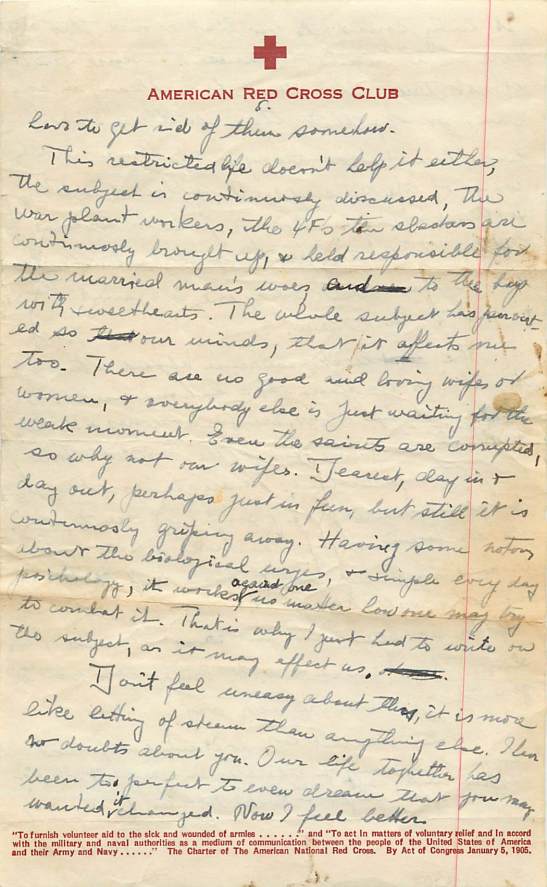 AMERICAN RED CROSS CLUB
8.
have to get rid of them somehow.
This restricted life doesn't help it either,
the subject is continuously discussed, the
war plant workers, the 4F's the are
continuously brought up, & held responsible for
the married man's woes, to the boy
with sweethearts. The whole subject has
ed so our minds, that it affects me
too. There are no good and loving wifes or
women, & everybody else is just waiting for the
weak moment. Even the saints are corrupted,
so why not our wifes. Dearest, day in &
day out, perhaps just in fun, but still it is
continuously griping away. Having some notion
about the biological urges, & simple every day
psichology, it works against one no matter how one may try
to combat it. That is why I just had to write on
the subject, as it may effect us.
Don't feel uneasy about this, it is more
like letting of steam than anything else. I have
no doubts about you. Our life together has
been to perfect to even dream that you may
wanted it changed. Now I feel better.
"To furnish volunteer aid to the sick and wounded of armies . . . . . ." and "To act in matters of voluntary relief and in accord
with the military and naval authorities as a medium of communication between the people of the United States of America
and their Army and Navy . . . . . ." The Charter of The American National Red Cross. By Act of Congress January 5, 1905.